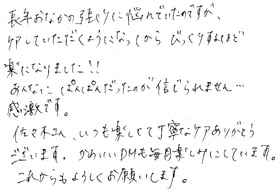 長年おなかの張りに悩んでいたのですが、
ケアしていただくようになってから びっくりするほど
楽になりました!!
あんなに ぱんぱんだったのが信じられません…
感激です。
佐々木さん、いつも楽しくて丁寧なケアありがとう
ございます。かわいいDMも毎月楽しみにしています。
これからもよろしくお願いします。